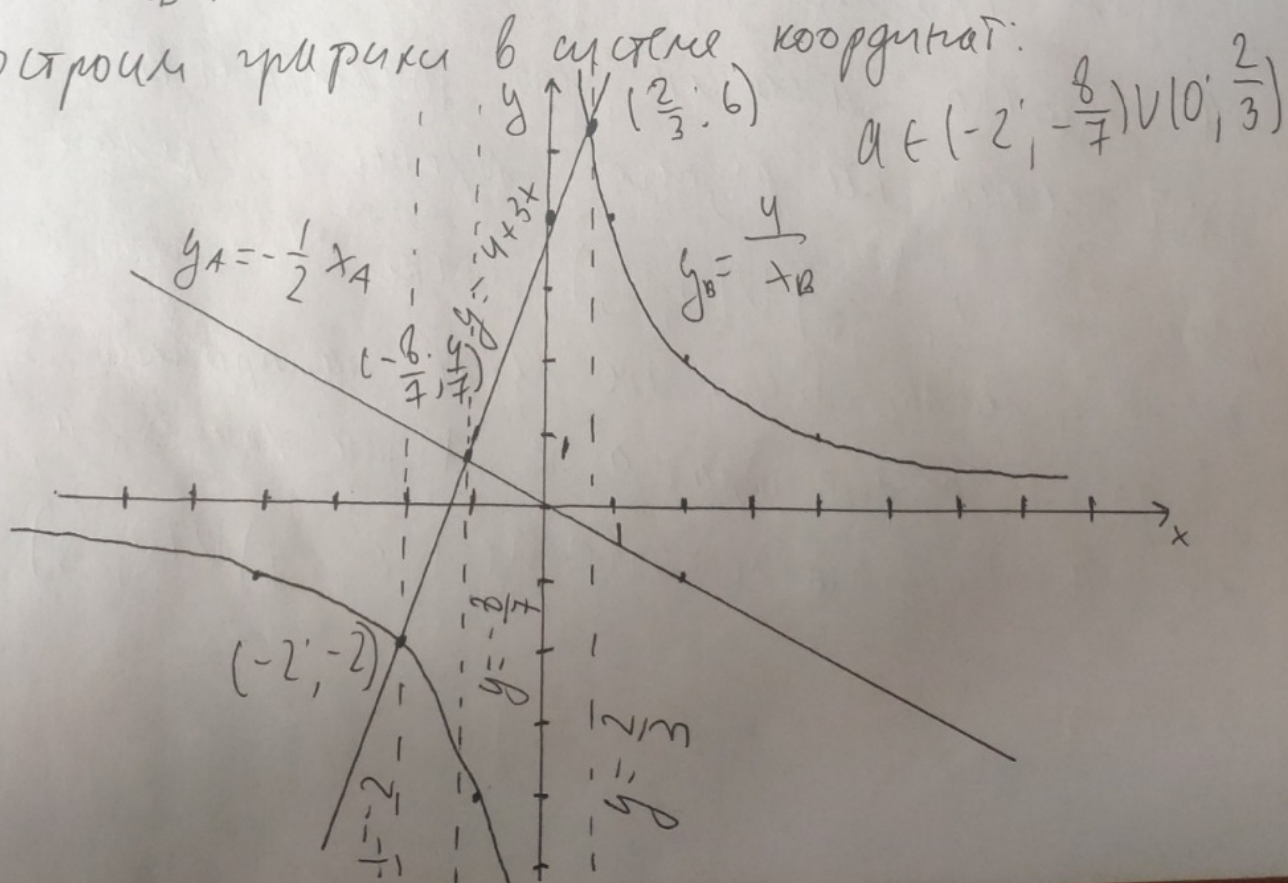 остроим графики в системе координат:
y
(2/3; 6)
a ∈ (-2; -8/7) ∪ (0; 2/3)
y_A = -1/2 x_A
y = 4+3x
y_B = 4/x_B
(-8/7; 4/7)
1
x
1
(-2; -2)
y = -8/7
y = 2/3
y = -2